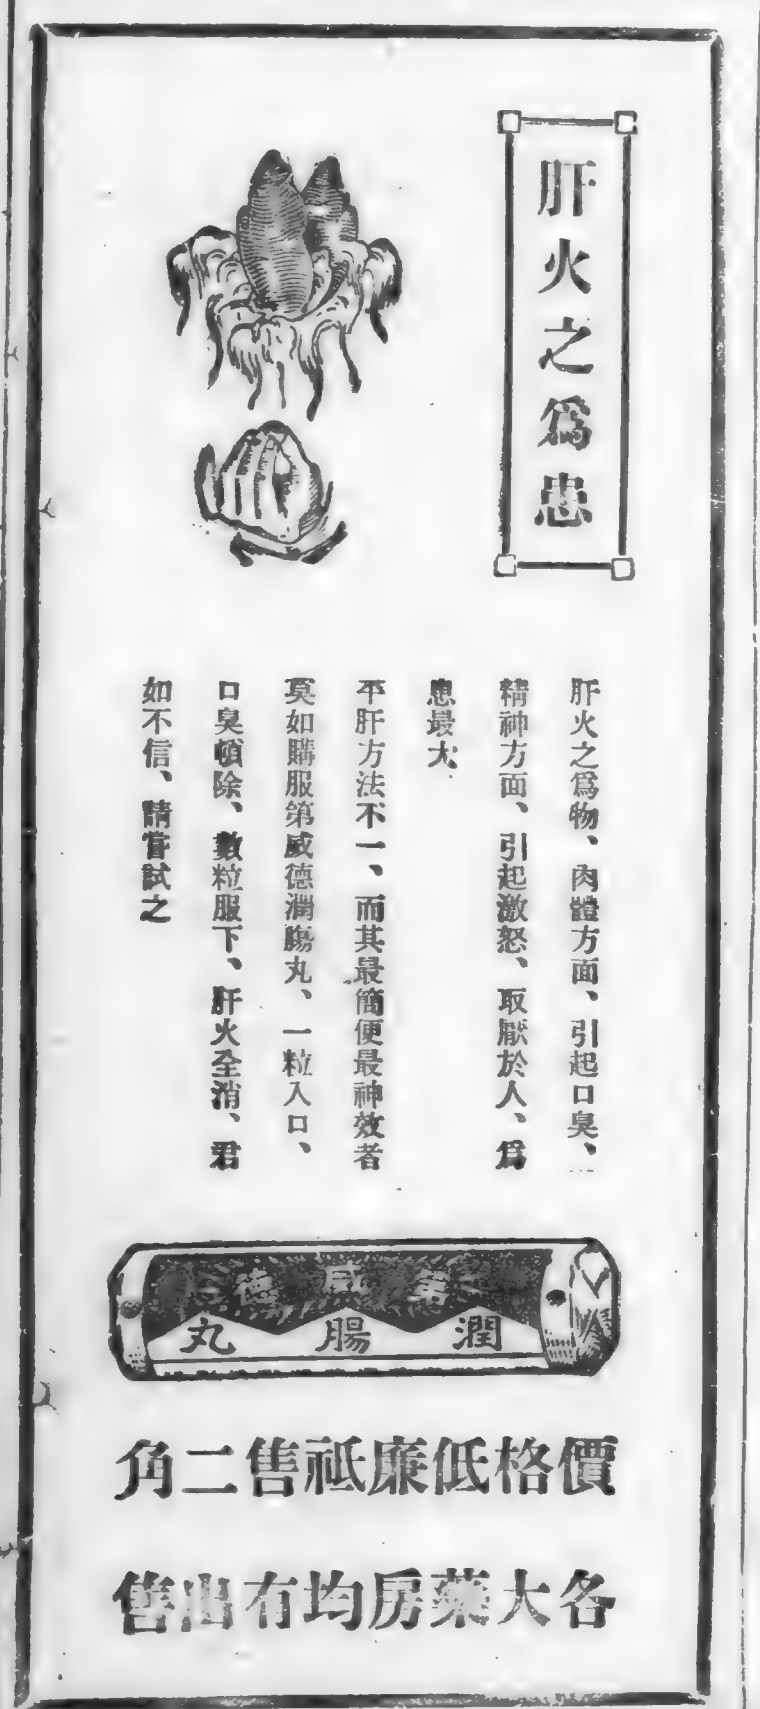 肝火之爲患
肝火之爲物、肉體方面、引起口臭、
精神方面、引起激怒、取厭於人、爲
患最大、
平肝方法不一、而其最簡便最神效者
莫如購服第威德潤腸丸、一粒入口、
口臭頓除、數粒服下、肝火全消、君
如不信、請嘗試之
潤腸丸
價格低廉祗售二角
各大藥房均有出售